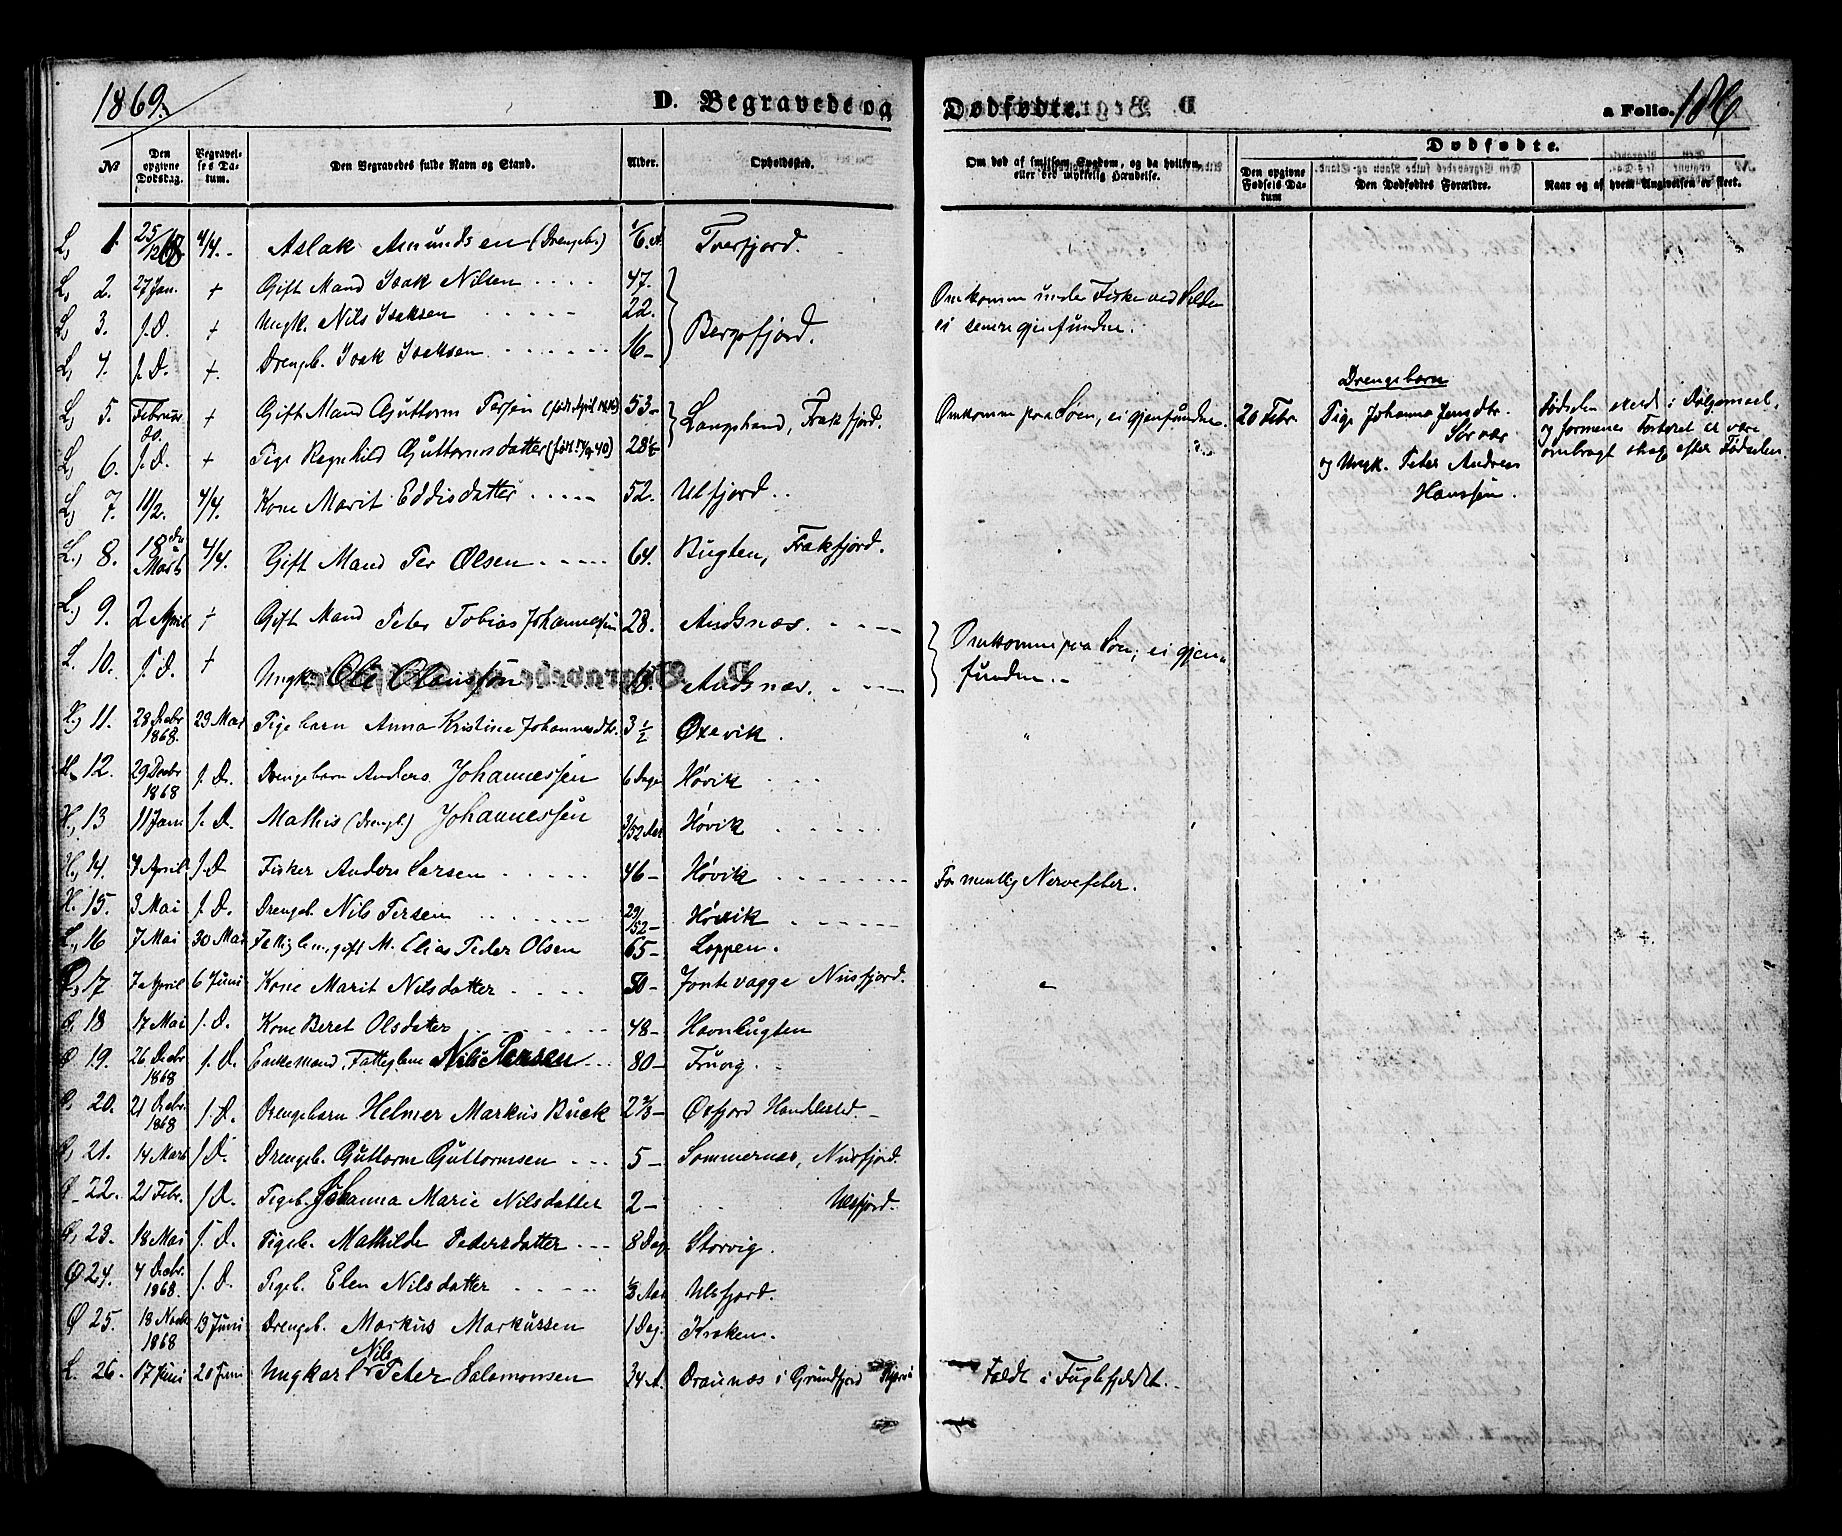 1869.
D. Begravede og Dødfødte.
a Folio. 186
№
Den opgivne Dødsdag.
Begravelses Datum.
Den Begravedes fulde Navn og Stand.
Alder.
Opholdssted.
Om død af smitsom Sygdom, og da hvilken, eller ved ulykkelig Hændelse.
Dødfødte.
Den opgivne Fødsels Datum
Den Dødfødtes Forældre.
Naar og af hvem Angivelsen er skeet.
L, 1. 25/12 68 4/4. Aslak Amundsen (Drengeb.) 1/6 A Tverfjord.
L, 2. 27 Jan. + Gift Mand Isak Nilsen 47.
L, 3. s. D. + Ungk. Nils Isaksen 22. Bergsfjord. Omkomne under Fiske ved Silden ei senere gjenfundne.
L, 4. s. D. +. Drengeb. Isak Isaksen 16-
L, 5. Februar 20. + Gift Mand Guttorm Persen (født April 1816) 53- Langstrand, Frakfjord. Omkomne paa Søen, ei gjenfundne.
L, 6. s. D. + Pige Ragnhild Guttormsdatter 28½-
20 Febr
Drengebarn
Pige Johanna Jensdtr. Sørvær
og Ungk. Peter Andreas Hanssen.
Fødselen skeed i Dølgsmaal, og formenes Fosteret at være ombragt strax efter Fødselen
L, 7. 11/2. 4/4. Kone Marit Eddisdatter 52. Ulfjord.
L., 8. 18 de Marts 4/4. Gift Mand Per Olsen 64. Bugten, Frakfjord.
L, 9. 2 April + Gift Mand Peter Tobias Johannessen 28. Andsnæs.
L. 10. s. D. + Ungk. Ole Olaussøn 18. Andsnæs. Omkomne paa Søen, ei gjenfundne.
H., 11. 28 Decbr 1868. 29 Mai Pigebarn Anna Kristine Johannesdtr. 3½ Øxevik.
H. 12. 29 Decbr 1868 s. D. Drengebarn Anders Johannessen 6 Dage Høvik
H., 13 11 Janu s. D. Mathis (Drengb.) Johannessen 3/52 Aar Høvik
H., 14. 4 April s. D Fisker Anders Larsen 46- Høvik Formentlig Nervefeber.
H. 15. 3 Mai s. D. Drengeb. Nils Persen 29/52- Høvik
L., 16 7 Mai 30 Mai Fattiglem, gift M. Elias Peder Olsen 65- Loppen.
Ø, 17 7 April 6 Juni Kone Marit Nilsdatter 50- Jontevagge Nusfjord.
Ø. 18 17 Mai s. D. Kone Beret Olsdatter 48- Havnbugten
Ø 19. 26 Decbr 1868 s. D Enkemand, Fattiglem Nils Persen 80- Truvig
Ø, 20. 21 Decbr. 1868 s. D. Drengebarn Helmer Markus Buck 2⅔- Øxfjord Handelssted.-
Ø, 21. 14 Marts s. D. Drengeb. Guttorm Guttormsen 5- Sommernæs, Nusfjord.
Ø- 22. 21 Febr. s. D. Pigeb. Johanna Marie Nilsdatter 2- Ulsfjord.
Ø, 23. 18 Mai s. D. Pigeb. Mathilde Pedersdatter 8 Dag Storvig.
Ø 24. 4 Decbr. 1868. s. D. Pigeb. Elen Nilsdatter ⅓ Aar Ulsfjord.
Ø 25. 18 Novbr 1868 13 Juni Drengeb. Markus Markussen 1 Dag. Kroken.
L. 26. 17 Juni 20 Juni Ungkarl Nils Peter Salamonsen 34 A. Draunæs i Grundfjord Faldt i Fuglefjeldet.